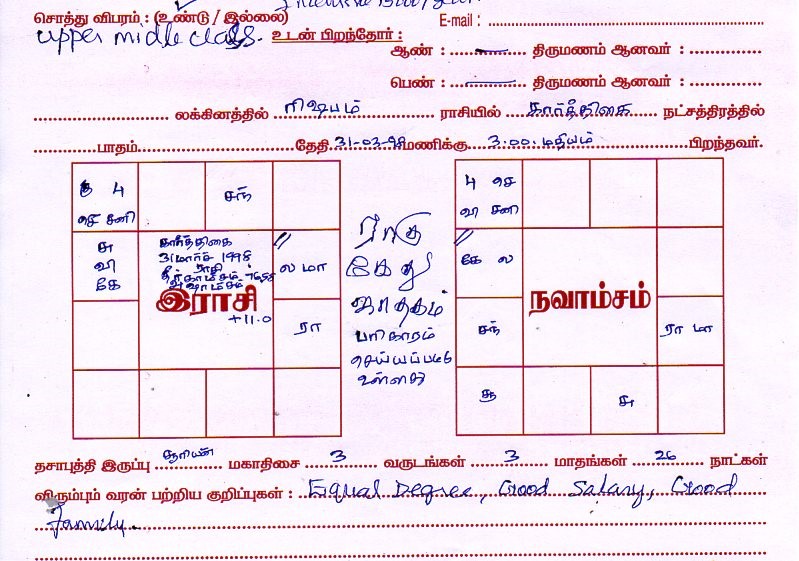 சொத்து விபரம் : (உண்டு / இல்லை)
E-mail :
upper midle class.
உடன் பிறந்தோர் :
ஆண் : திருமணம் ஆனவர் :
பெண் : திருமணம் ஆனவர் :
லக்கினத்தில் ரிஷபம் ராசியில் கார்த்திகை நட்சத்திரத்தில்
பாதம் தேதி 31-03-98 மணிக்கு 3.00. மதியம் பிறந்தவர்.
சந்
சனி
சு
வி
கே
கார்த்திகை
31 மார்ச் 1998
இராசி
+11.0
ல மா
ரா
ராகு
கேது
ஜாதகம்
பரிகாரம்
செய்யப்பட்டு
உள்ளது
4 செ
வி சனி
கே ல
சந்
சூ
நவாம்சம்
ரா மா
சு
தசாபுத்தி இருப்பு சூரியன் மகாதிசை 3 வருடங்கள் 3 மாதங்கள் 26 நாட்கள்
விரும்பும் வரன் பற்றிய குறிப்புகள் : Equal Degree, Good Salary, Good
family.